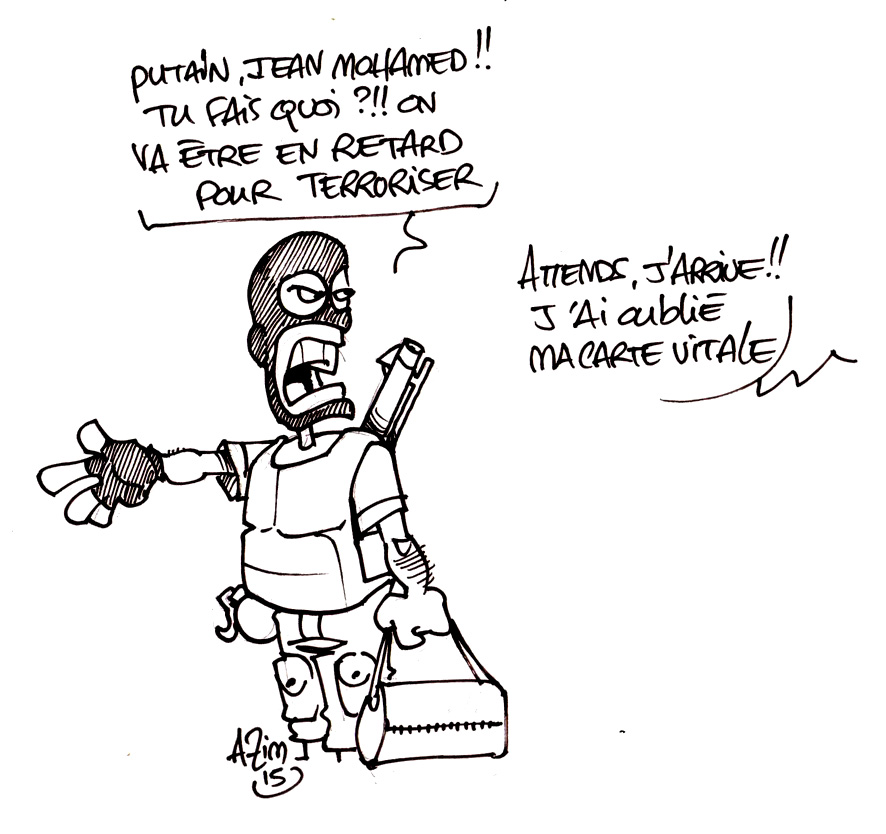 PUTAIN, JEAN MOHAMED!!
TU FAIS QUOI ?!! ON
VA ÊTRE EN RETARD
POUR TERRORISER
ATTENDS, J'ARRIVE!!
J'AI OUBLIÉ
MA CARTE VITALE
AZim
15